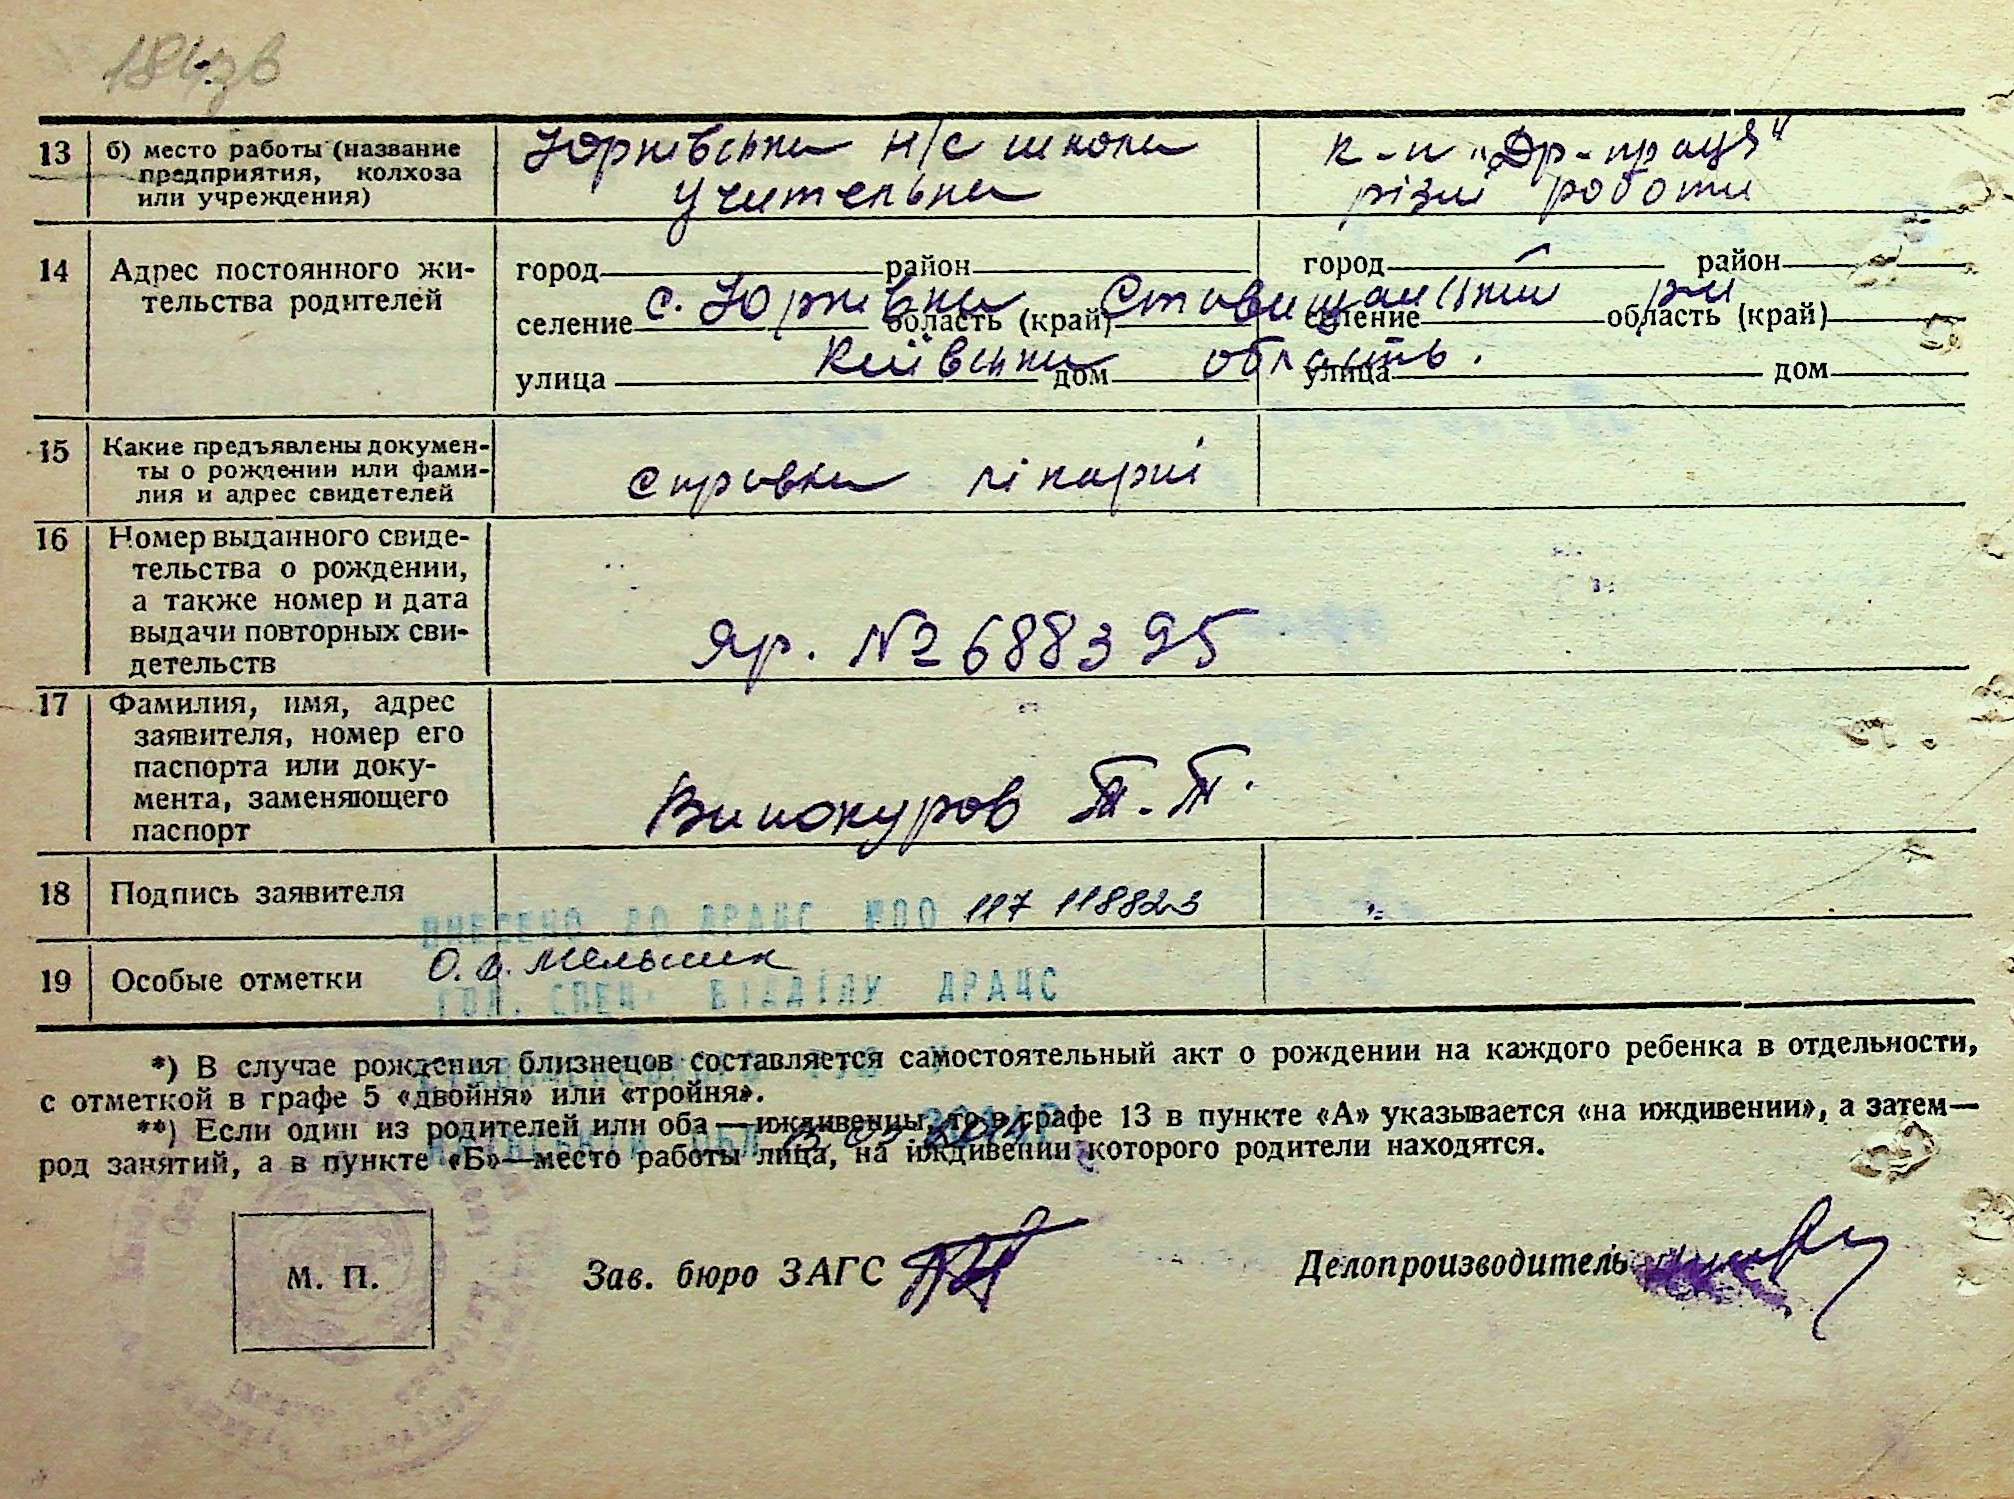 184зв
13 б) место работы (название предприятия, колхоза или учреждения)
Юрківська н/с школа учителька
к-п „Др-праця" різні роботи
14 Адрес постоянного жительства родителей
город район город район
с. Юрківка Ставищанський р-н
селение область (край) селение область (край)
Київська область.
улица дом улица дом
15 Какие предъявлены документы о рождении или фамилия и адрес свидетелей
справка лікарні
16 Номер выданного свидетельства о рождении, а также номер и дата выдачи повторных свидетельств
Яр. № 688395
17 Фамилия, имя, адрес заявителя, номер его паспорта или документа, заменяющего паспорт
Винокуров Т. Т.
18 Подпись заявителя
ВНЕСЕНО ДО ДРАЦС 117 118823
19 Особые отметки
О. Мельник
ГОЛ. СПЕЦ. ВІДДІЛУ ДРАЦС
*) В случае рождения близнецов составляется самостоятельный акт о рождении на каждого ребенка в отдельности,
с отметкой в графе 5 «двойня» или «тройня».
**) Если один из родителей или оба—иждивенцы, то в графе 13 в пункте «А» указывается «на иждивении», а затем—
род занятий, а в пункте «Б»—место работы лица, на иждивении которого родители находятся.
М. П.
Зав. бюро ЗАГС
Делопроизводитель